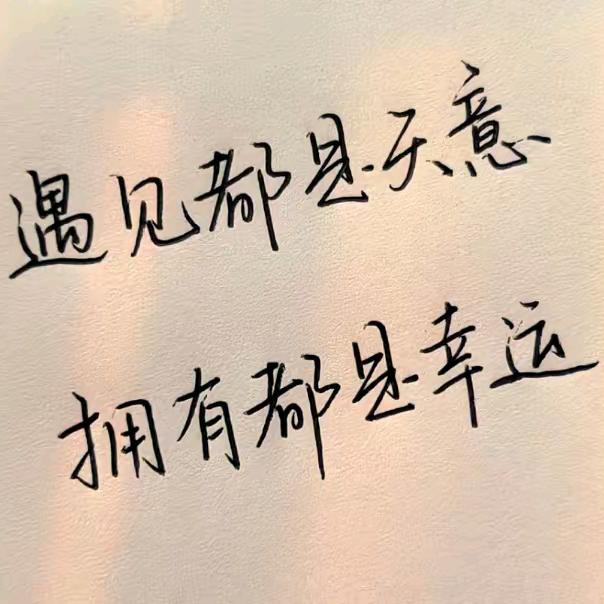 遇见都是天意
拥有都是幸运